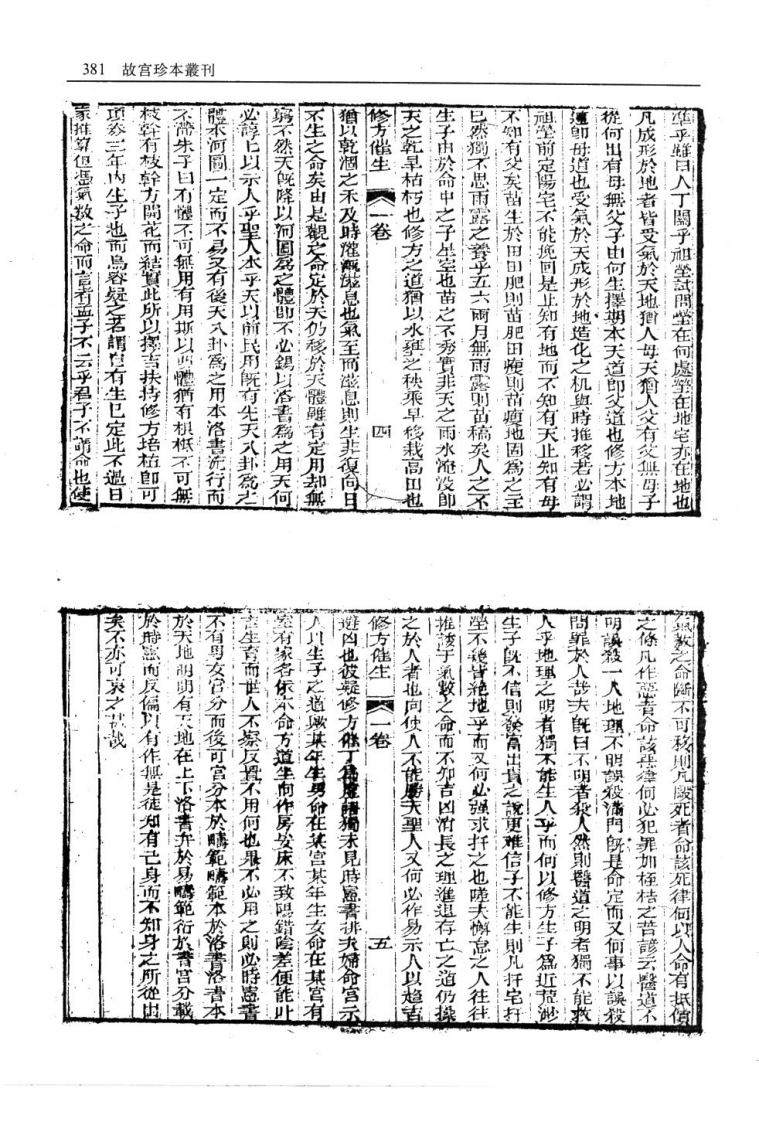 381 故宫珍本叢刊
準乎雖曰人丁關乎祖塋試問塋在何處塋在地宅亦在地也
凡成形於地者皆受氣於天地猶人母天猶人父有父無母子
從何出有母無父子由何生擇期本天道卽父道也修方本地
道卽母道也受氣於天成形於地造化之机與時推移若必謂
祖塋前定陽宅不能挽回是止知有地而不知有天止知有母
不知有父矣苗生於田田肥則苗肥田瘦則苗瘦地固爲之主
已然獨不思雨露之養乎五六兩月無雨露則苗稿矣人之不
生子由於命中之子星空也苗之不秀實非天之雨水淹没卽
天之乾旱枯朽也修方之道猶以水蓮之秧乘早移栽高田也
修方催生 一卷 四
猶以乾涸之禾及時灌溉滋息也氣至而滋息則生非復向日
不生之命矣由是觀之命定於天仍移於天體雖有定用却無
窮不然天旣降以河圖爲之體卽不必錫以洛書爲之用天何
必諄上以示人乎聖人本乎天以前民用旣有先天八卦爲之
體本河圖一定而不易又有後天八卦爲之用本洛書流行而
不滯朱子曰有體不可無用有用斯以西體猶有根柢不可無
枝幹有枝幹方開花而結實此所以擇吉扶持修方培植卽可
項劵三年内生子也而烏容疑之若謂自有生已定此不過日
家推算但憑氣數之命而言者孟子不云乎君子不謂命也使
氣數之命斷不可移則凡殿死者命該死律何以人命有抵償
之條凡作惡者命該典律何必犯罪加桎梏之苦諺云醫道不
明誤殺一人地理不明誤殺滿門旣是命定而又何事以誤殺
問罪於人哉夫旣曰不明者殺人然則醫道之明者獨不能救
人乎地理之明者獨不能生人乎而何以修方生子爲近荒渺
生子旣不信則發富出貴之說更難信子不能生則凡扞宅扞
塋不幾皆絶地乎而又何必強求扞之也陸夫懈怠之人往往
推諉于氣數之命而不知吉凶消長之理進退存亡之道仍操
之於人者也向使人不能勝天聖人又何必作易示人以趨吉
修方催生 一卷 五
避凶也彼疑修方催丁爲虛語獨未見時憲書排夫婦命宮示
人以生子之道歟某年生男命在某宮某年生女命在某宮有
室有家各依本命方道坐向作房安床不致陽錯陰差便能叶
吉生育而世人不察反置不用何也果不必用之則必時憲書
不有男女宮分而後可宮分本於疇範疇範本於洛書洛書本
於天地明明有天地在上下洛書弁於易疇範衍於書宮分載
於時憲而反偏以有作無是徒知有已身而不知身之所從出
矣不亦可哀之甚哉